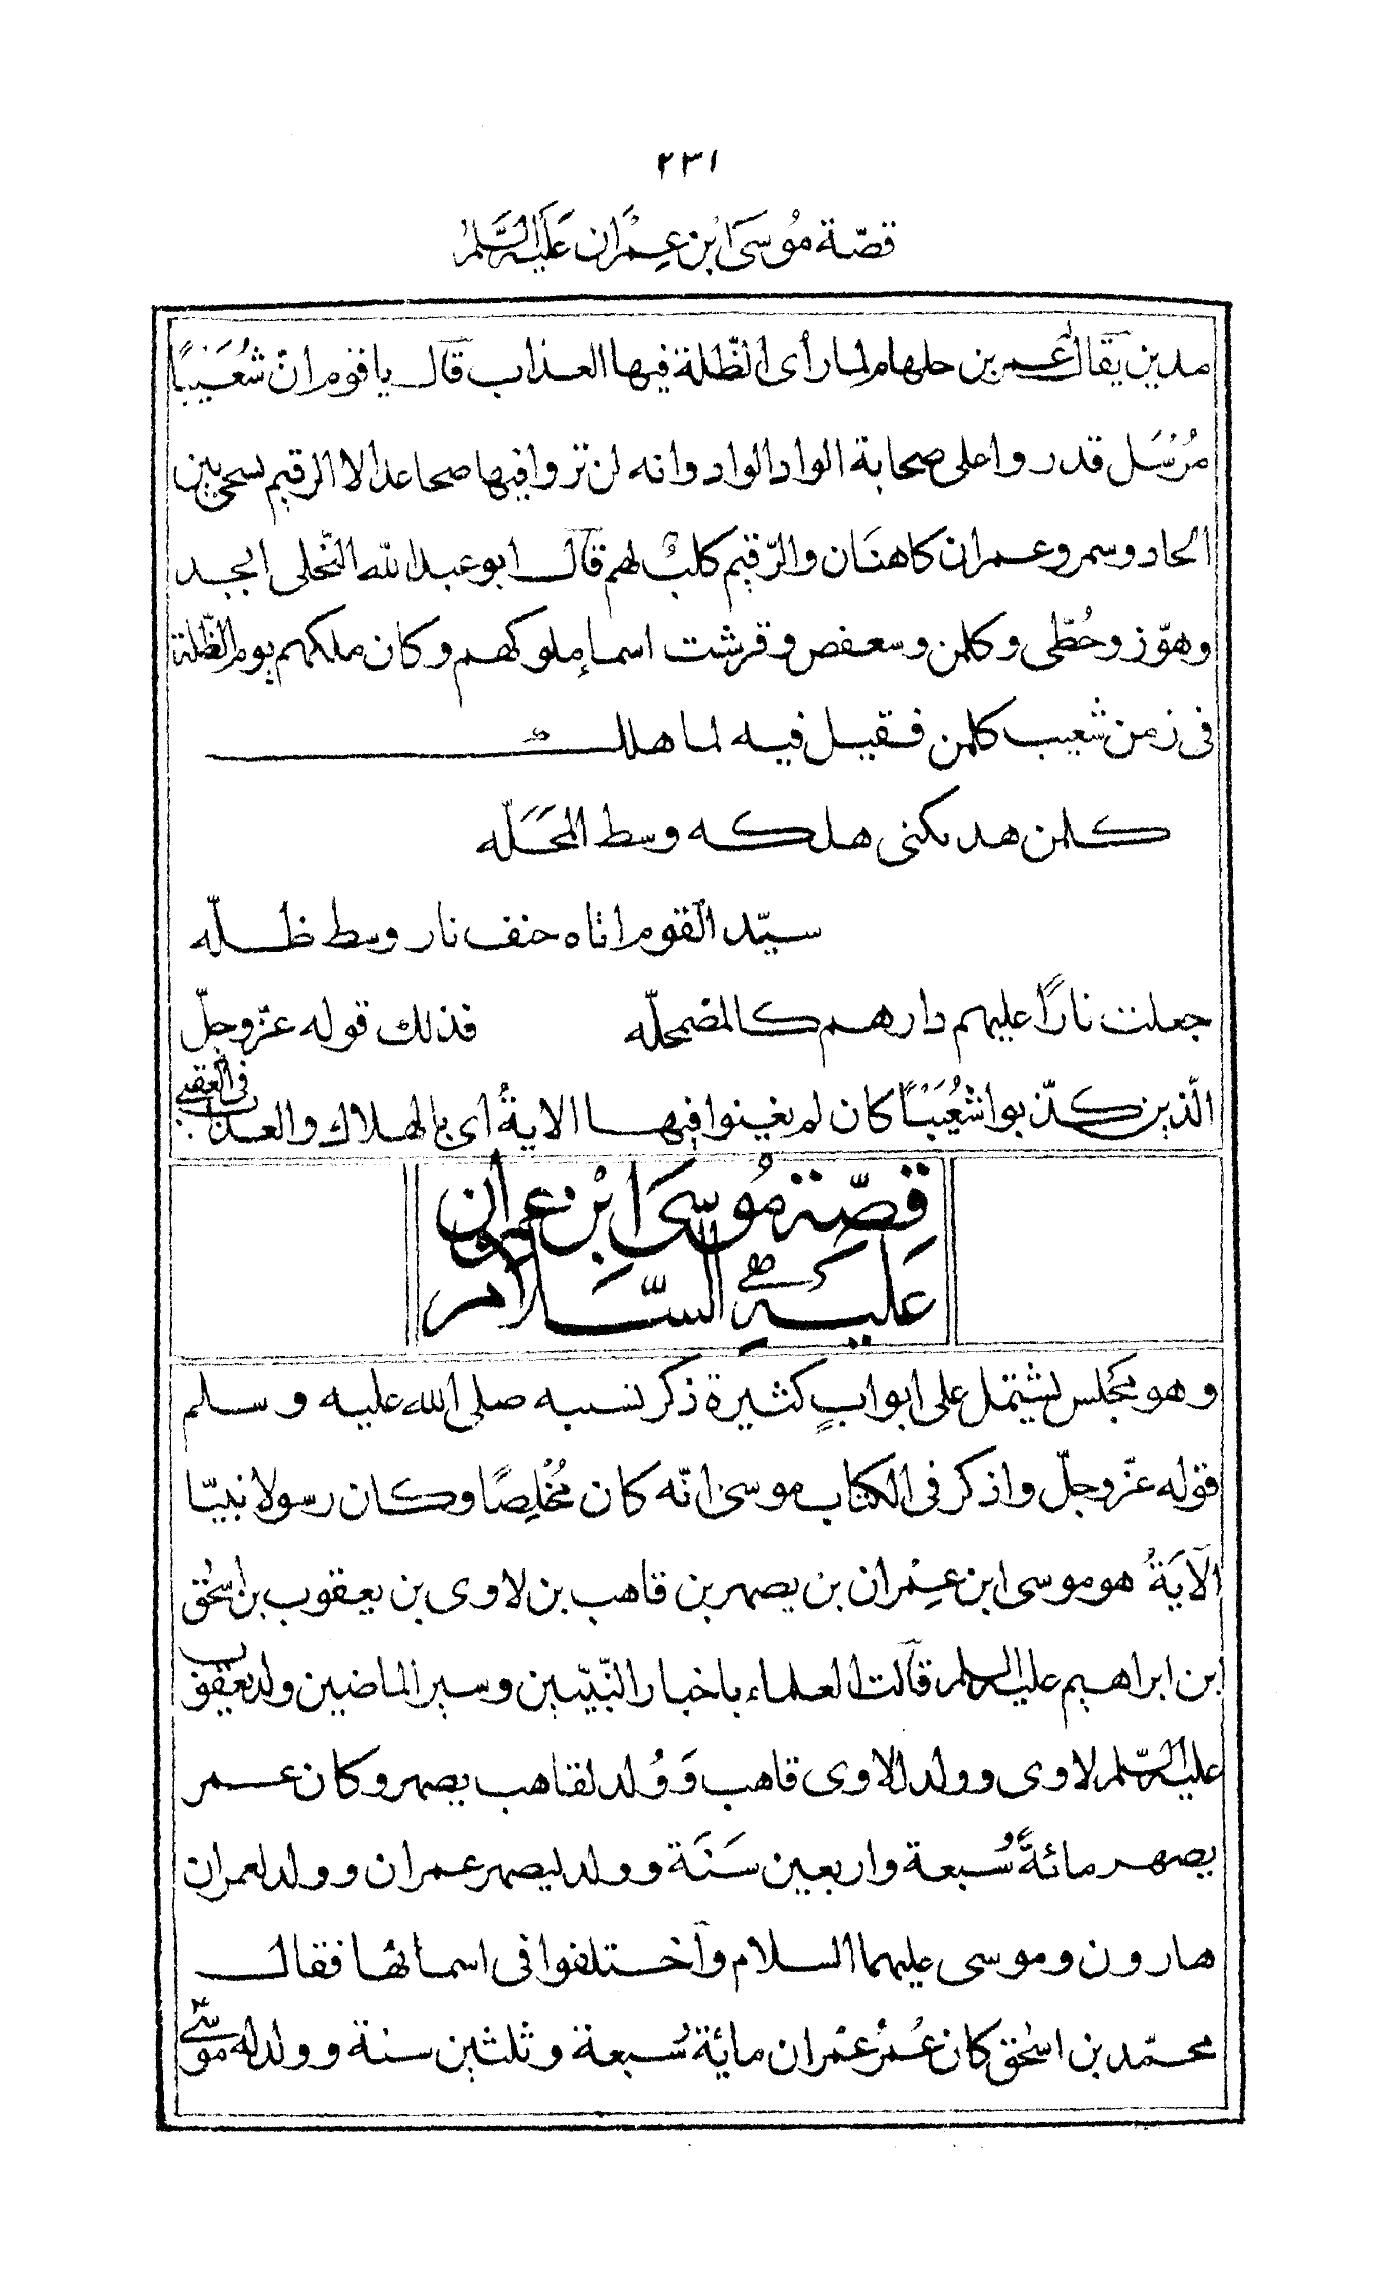 ٢٣١
قصّة مُوسَى ابْن عِمْرَان عَلَيْهِ السَّلَم
مدين يقال عمر بن حلهام لما رأى الظّلة فيها العذاب قال يا قوم انّ شُعَيْبًا
مُرْسَل قدروا على صحابة الواد الواد وانه لن تروا فيها صحا عدا لا الرقيم يسحى بين
الحاد وسمر وعمران كاهنَان والرّقيم كلبٌ لهم قال ابو عبد الله البّجلى ابجد
وهوّز وحُطّى وكلمن وسعفص وقرشت اسماء ملوكهم وكان ملكهم يوم الظّلة
فى زمن شعيب كلمن فقيل فيه لما هلك
كلمن هد بكنى هلكه وسط المَحَلّه
سيّد القوم اتاه حتف نار وسط ظلّه
جعلت نارًا عليهم دارهم كالمضمحلّه فذلك قوله عزّ وجلّ
الّذين كذّبوا شُعَيْبًا كان لم يغنوا فيها الاية اى بالهلاك والعذاب فى العقبى
قِصّة مُوسَى ابْن عمران
عليه السَّلام
وهو مجلس يشتمل على ابوابٍ كثيرة ذكر نسبه صلى الله عليه وسلم
قوله عزّ وجلّ واذكر فى الكتاب موسى انّه كان مُخْلِصًا وكان رسولا نبيّا
الآيَةُ هو موسى ابن عِمْران بن يصهر بن قاهب بن لاوى بن يعقوب بن اسحٰق
ابن ابراهيم عليه السلم قالت العلماء باخبار النّبيّين وسير الماضين ولد يعقوب
عليه السّلم لاوى وولد للاوى قاهب وَوُلد لقاهب يصهر وكان عمر
يصهر مائةً سُبعة واربعين سَنَة وولد ليصهر عمران وولد لعمران
هارون وموسى عليهما السلام وآختلفوا فى اسمائها فقال
محمّد بن اسحٰق كان عُمرْ عمْران مائة سُبعة وثلثين سنة وولد له موسٰى